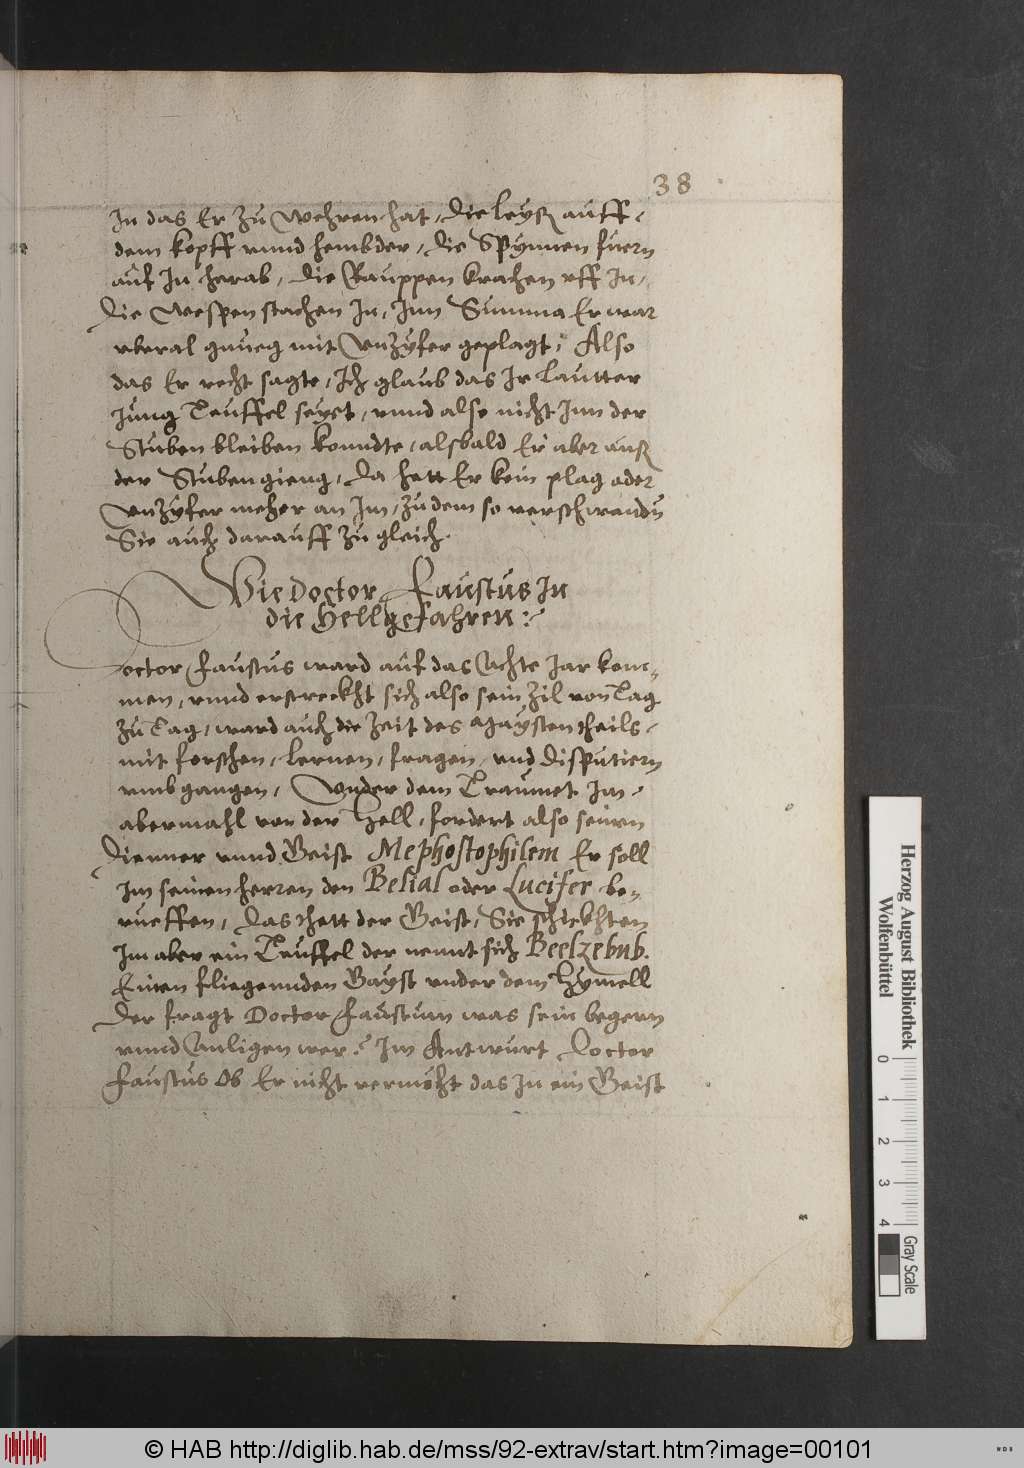 38
In das Er zu wehren hat, die leyß auff
dem kopff vnnd hembder, die Spynnen fuern
auf In herab, die Rauppen krochen vff In,
die wespen stachen In, Inn Summa Er war
vberal gnueg mit Vnzyfer geplagt, Also
das Er recht sagte, Ich glaub das Ir lautter
Jung Teuffel seyet, vnnd also nicht Inn der
Stuben bleiben konndte, alsbald Er aber auß
der Stuben gieng, da hett Er kein plag oder
Vnzyfer meher an Im, zu dem so verschwanden
Sie auch darauff zu gleich.
Wie Doctor Faustus In
die Hell gefahren:
Doctor Faustus ward auf das Achte Jar kom-
men, vnnd erstreckht sich also sein Zil von Tag
zu Tag, ward auch die Zeit des Maysten theils
mit forschen, lernen, fragen, vnd disputiern
vmbgangen, Vnder dem Traumet Im
abermahl von der Hell, fordert also seinen
dienner vnnd Geist Mephostophilem Er soll
Im seinen herren den Belial oder Lucifer be-
rueffen, das thett der Geist, Sie schickhten
Im aber ein Teuffel der nennt sich Beelzebub.
Einen fliegennden Gayst vnder dem Hymell
der fragt Doctor Faustum was sein begern
vnnd Anligen wer? Im Antwurt Doctor
Faustus Ob Er nicht vermöcht das In ein Geist
Herzog August Bibliothek
Wolfenbüttel
0 1 2 3 4
Gray Scale
© HAB http://diglib.hab.de/mss/92-extrav/start.htm?image=00101
WDB